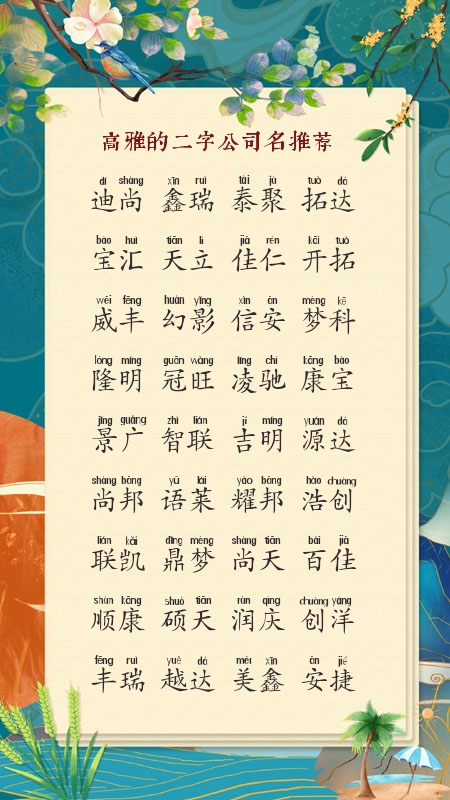 高雅的二字公司名推荐
dí shàng xīn ruì tài jù tuò dá
迪尚 鑫瑞 泰聚 拓达
bǎo huì tiān lì jiā rén kāi tuò
宝汇 天立 佳仁 开拓
wēi fēng huàn yǐng xìn ān mèng kē
威丰 幻影 信安 梦科
lóng míng guān wàng líng chí kāng bǎo
隆明 冠旺 凌驰 康宝
jǐng guǎng zhì lián jí míng yuán dá
景广 智联 吉明 源达
shàng bāng yǔ lái yào bāng hào chuàng
尚邦 语莱 耀邦 浩创
lián kǎi dǐng mèng shàng tiān bǎi jiā
联凯 鼎梦 尚天 百佳
shùn kāng shuò tiān rùn qìng chuàng yáng
顺康 硕天 润庆 创洋
fēng ruì yuè dá měi xīn ān jié
丰瑞 越达 美鑫 安捷